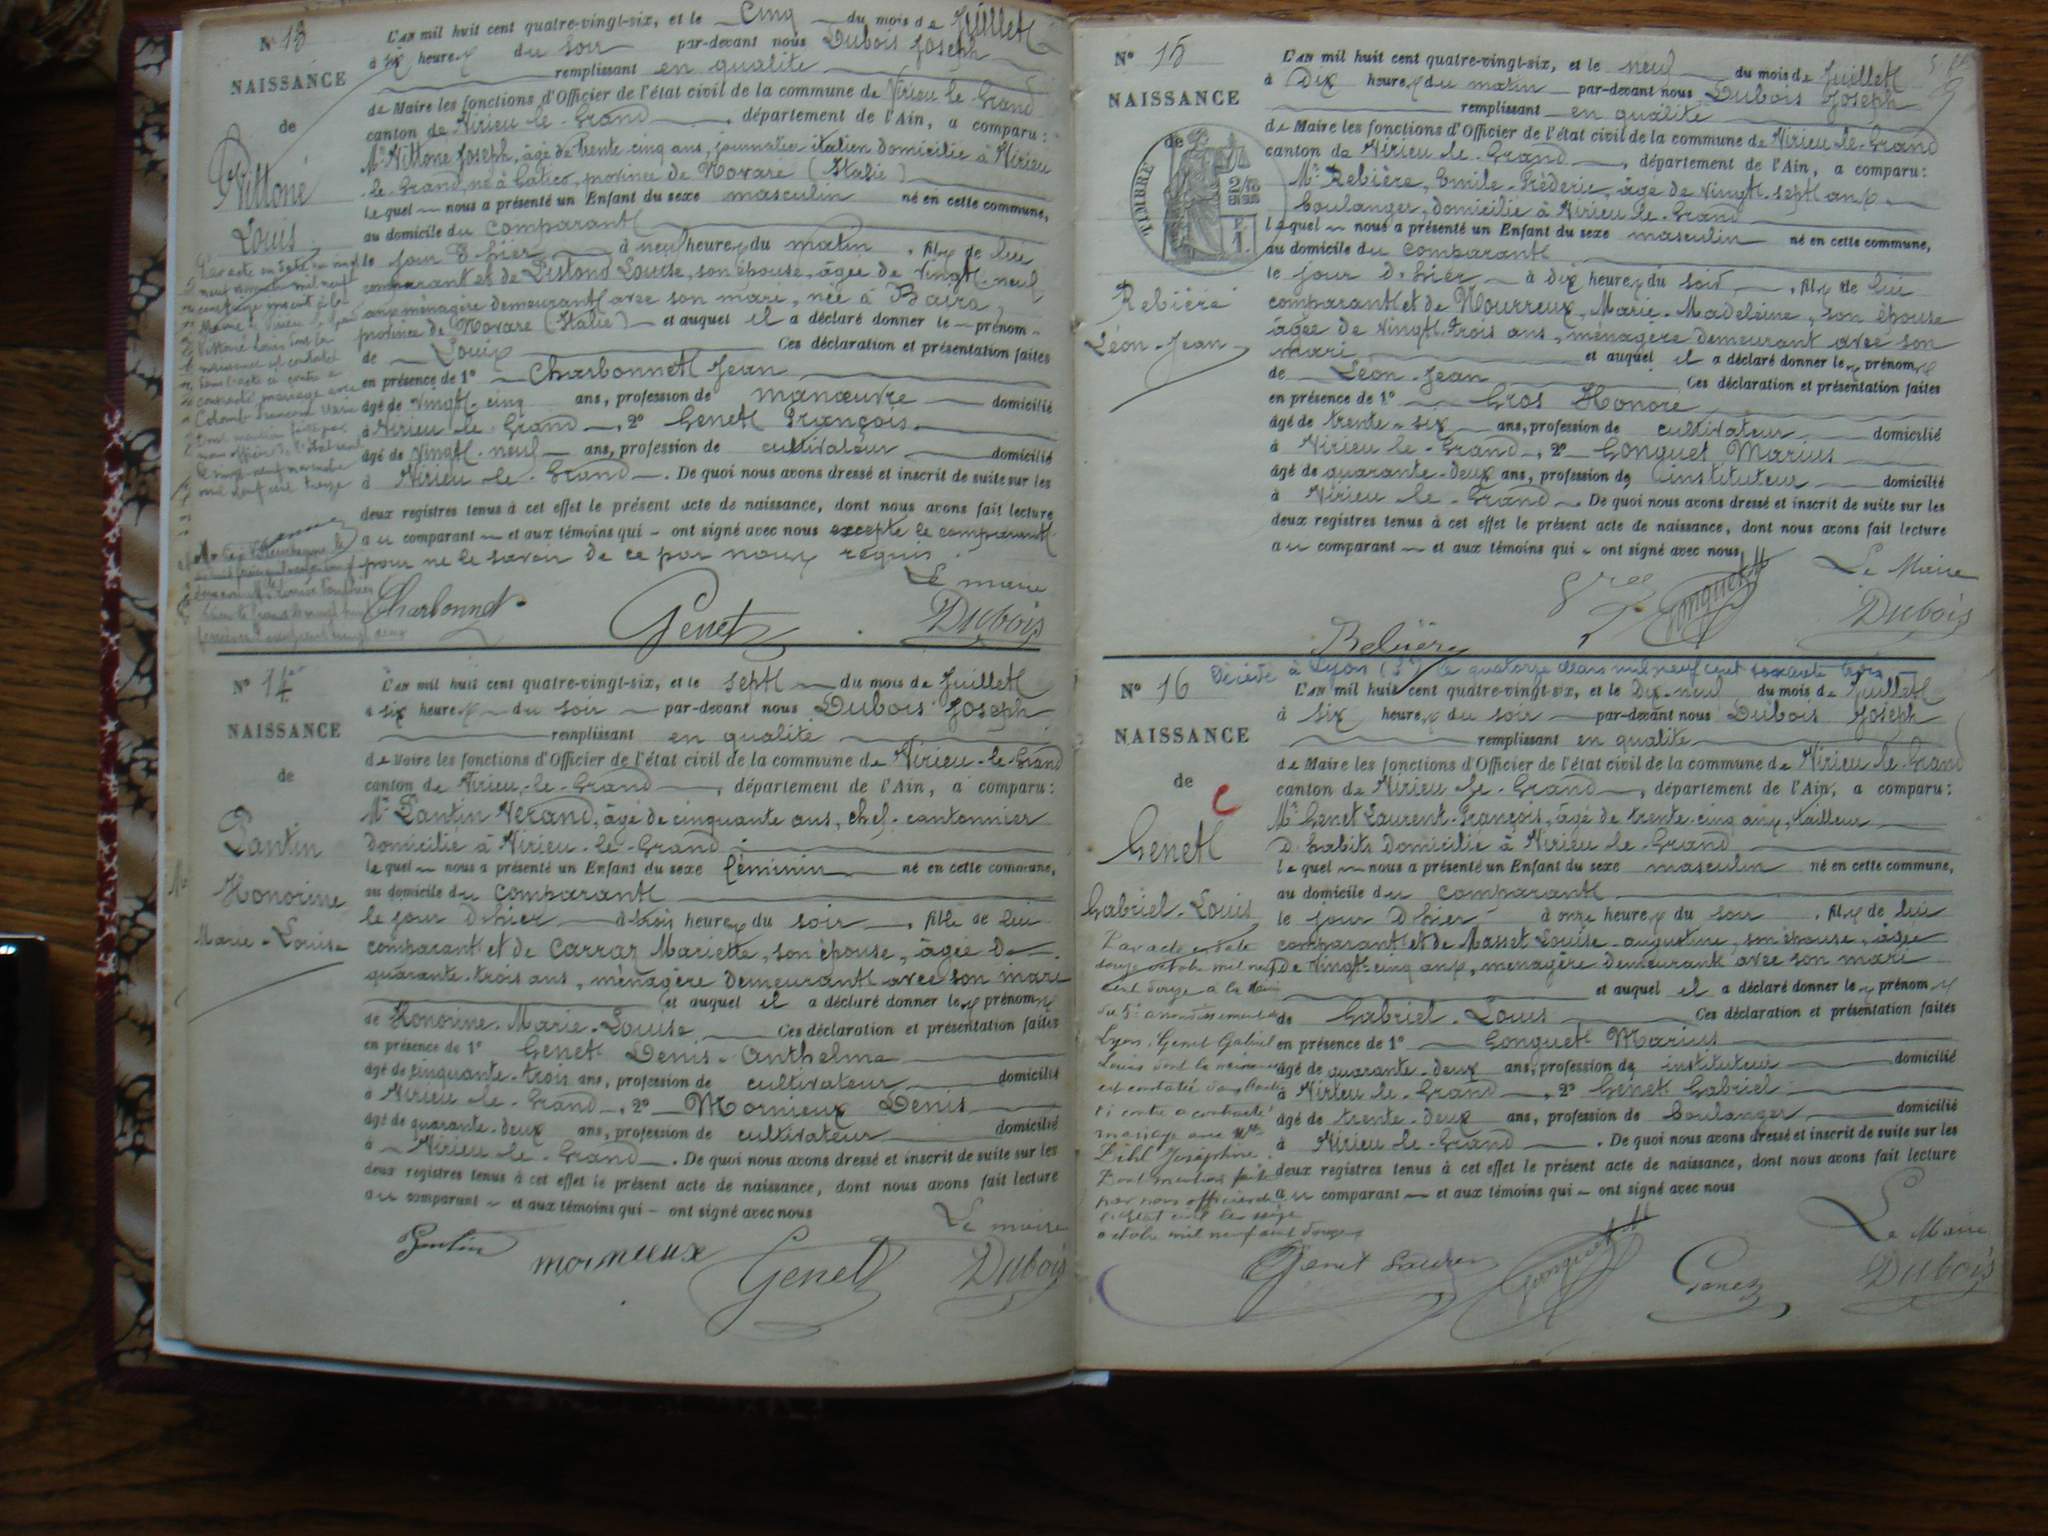 N° 13
NAISSANCE
de
Vittoné
Louis
L'AN mil huit cent quatre-vingt-six, et le cinq du mois de Juillet
à six heures du soir par-devant nous Dubois Joseph
remplissant en qualité
de Maire les fonctions d'Officier de l'état civil de la commune de Virieu-le-Grand
canton de Virieu-le-Grand, département de l'Ain, a comparu:
Mr Vittone Joseph, âgé de trente-cinq ans, journalier italien domicilié à Virieu
le-Grand, né à Gatico, province de Novare (Italie)
lequel nous a présenté un Enfant du sexe masculin né en cette commune,
au domicile du comparant
le jour d'hier à neuf heures du matin, fils de lui
comparant et de Louise, son épouse, âgée de vingt-neuf
ans ménagère demeurant avec son mari, née à
province de Novare (Italie) et auquel il a déclaré donner le prénom
de Louis Ces déclaration et présentation faites
en présence de 1° Charbonnet Jean
âgé de vingt-cinq ans, profession de manœuvre domicilié
à Virieu-le-Grand, 2° Genet François
âgé de vingt-neuf ans, profession de cultivateur domicilié
à Virieu-le-Grand. De quoi nous avons dressé et inscrit de suite sur les
deux registres tenus à cet effet le présent acte de naissance, dont nous avons fait lecture
au comparant et aux témoins qui ont signé avec nous excepté le comparant
pour ne le savoir de ce par nous requis.
Le maire
Charbonnet Genet Dubois
Vittoné Louis dont la
naissance est constatée
dans l'acte ci contre a
contracté mariage avec
Dont mention faite par
nous officier de l'état civil
le vingt-neuf novembre
mil neuf cent treize
N° 14
NAISSANCE
de
Pantin
Honorine
Marie-Louise
L'AN mil huit cent quatre-vingt-six, et le sept du mois de Juillet
à six heures du soir par-devant nous Dubois Joseph
remplissant en qualité
de Maire les fonctions d'Officier de l'état civil de la commune de Virieu-le-Grand
canton de Virieu-le-Grand, département de l'Ain, a comparu:
Mr Pantin Vérand, âgé de cinquante ans, chef-cantonnier
domicilié à Virieu-le-Grand
lequel nous a présenté un Enfant du sexe féminin né en cette commune,
au domicile du comparant
le jour d'hier à trois heures du soir, fille de lui
comparant et de Carraz Mariette, son épouse, âgée de
quarante-trois ans, ménagère demeurant avec son mari
et auquel il a déclaré donner les prénoms
de Honorine-Marie-Louise Ces déclaration et présentation faites
en présence de 1° Genet Denis-Anthelme
âgé de cinquante-trois ans, profession de cultivateur domicilié
à Virieu-le-Grand, 2° Mornieux Denis
âgé de quarante-deux ans, profession de cultivateur domicilié
à Virieu-le-Grand. De quoi nous avons dressé et inscrit de suite sur les
deux registres tenus à cet effet le présent acte de naissance, dont nous avons fait lecture
au comparant et aux témoins qui ont signé avec nous
Le maire
Pantin mornieux Genet Dubois
N° 15
NAISSANCE
de
TIMBRE
Rebière
Léon-Jean
L'AN mil huit cent quatre-vingt-six, et le neuf du mois de Juillet
à dix heures du matin par-devant nous Dubois Joseph
remplissant en qualité
de Maire les fonctions d'Officier de l'état civil de la commune de Virieu-le-Grand
canton de Virieu-le-Grand, département de l'Ain, a comparu:
Mr Rebière, Emile-Fréderic, âgé de vingt-sept ans
boulanger, domicilié à Virieu-le-Grand
lequel nous a présenté un Enfant du sexe masculin né en cette commune,
au domicile du comparant
le jour d'hier à dix heures du soir, fils de lui
comparant et de Mourreux, Marie-Madeleine, son épouse
âgée de vingt-trois ans, ménagère demeurant avec son
mari et auquel il a déclaré donner les prénoms
de Léon-Jean Ces déclaration et présentation faites
en présence de 1° Gros Honoré
âgé de trente-six ans, profession de cultivateur domicilié
à Virieu-le-Grand, 2° Gonguet Marius
âgé de quarante-deux ans, profession de instituteur domicilié
à Virieu-le-Grand. De quoi nous avons dressé et inscrit de suite sur les
deux registres tenus à cet effet le présent acte de naissance, dont nous avons fait lecture
au comparant et aux témoins qui ont signé avec nous
Le Maire
Gros Gonguet Dubois
Rebière
Décédé à Lyon (3°) le quatorze mars mil neuf cent soixante trois
N° 16
NAISSANCE
de
C
Genet
Gabriel-Louis
L'AN mil huit cent quatre-vingt-six, et le dix-neuf du mois de Juillet
à six heures du soir par-devant nous Dubois Joseph
remplissant en qualité
de Maire les fonctions d'Officier de l'état civil de la commune de Virieu-le-Grand
canton de Virieu-le-Grand, département de l'Ain, a comparu:
Mr Genet Laurent-François, âgé de trente-cinq ans, tailleur
d'habits domicilié à Virieu-le-Grand
lequel nous a présenté un Enfant du sexe masculin né en cette commune,
au domicile du comparant
le jour d'hier à onze heures du soir, fils de lui
comparant et de Masset Louise-augustine, son épouse, âgée
de vingt-cinq ans, ménagère demeurant avec son mari
et auquel il a déclaré donner les prénoms
de Gabriel-Louis Ces déclaration et présentation faites
en présence de 1° Gonguet Marius
âgé de quarante-deux ans, profession de instituteur domicilié
à Virieu-le-Grand, 2° Genet Gabriel
âgé de trente-deux ans, profession de boulanger domicilié
à Virieu-le-Grand. De quoi nous avons dressé et inscrit de suite sur les
deux registres tenus à cet effet le présent acte de naissance, dont nous avons fait lecture
au comparant et aux témoins qui ont signé avec nous
Le Maire
Genet Gonguet Genet Dubois
Par acte en date
douze octobre mil neuf
cent douze à la Mairie
du 5e arrondissement de
Lyon, Genet Gabriel
Louis dont la naissance
est constatée dans l'acte
ci contre a contracté
mariage avec Mlle
Joséphine
Dont mention faite
par nous officier de
l'état civil le seize
octobre mil neuf cent douze